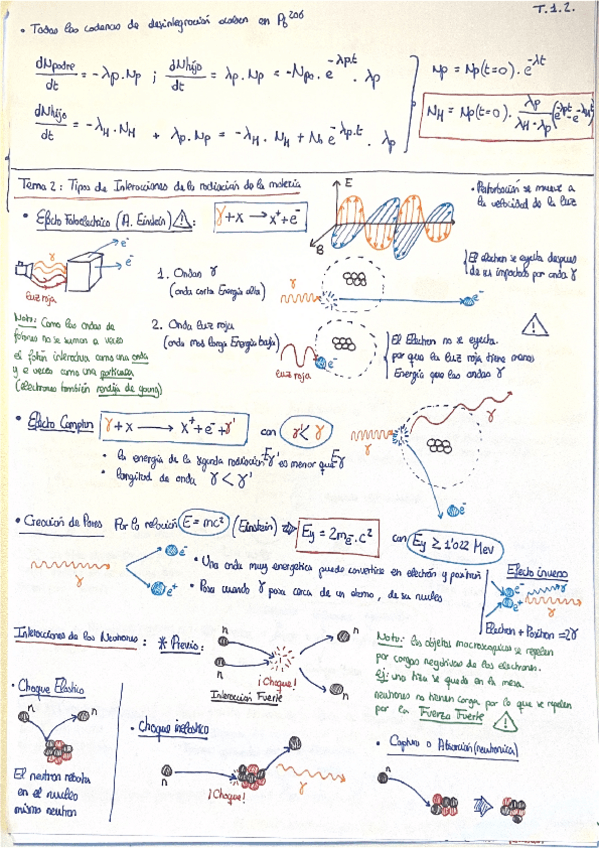 T.1.2.
• Todas las cadenas de desintegración acaban en Pb²⁰⁶
dNpadre/dt = -λp·Np ; dNhijo/dt = λp·Np = -Np₀·e^-λp·t · λp
Np = Np(t=0)·e^-λt
dNhijo/dt = -λH·NH + λp·Np = -λH·NH + N₀ e^-λp·t · λp
NH = Np(t=0)· λp/(λH-λp) (e^-λpt - e^-λHt)
Tema 2: Tipos de Interacciones de la radiación de la materia
• Efecto Fotoelectrico (A. Einstein) ⚠:
γ+x → x⁺+e⁻
E
B
• Perturbación se mueve a
la velocidad de la luz
γ
e⁻
e⁻
luz roja
1. Ondas γ
(onda corta Energía alta)
γ
e⁻
El electron se eyecta despues
de ser impactado por onda γ
Nota: Como las ondas de
fotones no se suman a veces
el fotón interactua como una onda
y a veces como una particula
(electrones también rendija de young)
2. Onda luz roja
(onda mas larga Energía baja)
luz roja
e⁻
El Electron no se eyecta
por que la luz roja tiene menos
Energía que las ondas γ
• Efecto Compton
γ+x → x⁺+e⁻+γ'
con
γ'<γ
γ
γ
e⁻
• la energía de la segunda radiación Eγ' es menor que Eγ
• longitud de onda γ < γ'
• Creación de Pares
Por la relación E=mc² (Einstein) ⇒ Eγ = 2me⁻·c² con Eγ ≥ 1'022 Mev
γ
e⁻
e⁺
• Una onda muy energetica puede convertirse en electrón y positrón
• Pasa cuando γ pasa cerca de un atomo, de su nucleo
Efecto inverso
e⁻
e⁺
γ
γ
Electron + Positron = 2γ
Interacciones de los Neutrones:
* Previo:
n
n
n
n
¡Choque!
Interacción Fuerte
Nota: los objetos macroscopicos se repelen
por cargas negativas de los electrones.
Ej: una tiza se queda en la mesa.
neutrones no tienen carga por lo que se repelen
por la Fuerza Fuerte ⚠
• Choque Elastico
n
n
El neutron rebota
en el nucleo
mismo neutron
• Choque inelastico
n
n
γ
¡Choque!
• Captura o Absorción (neutronica)
n